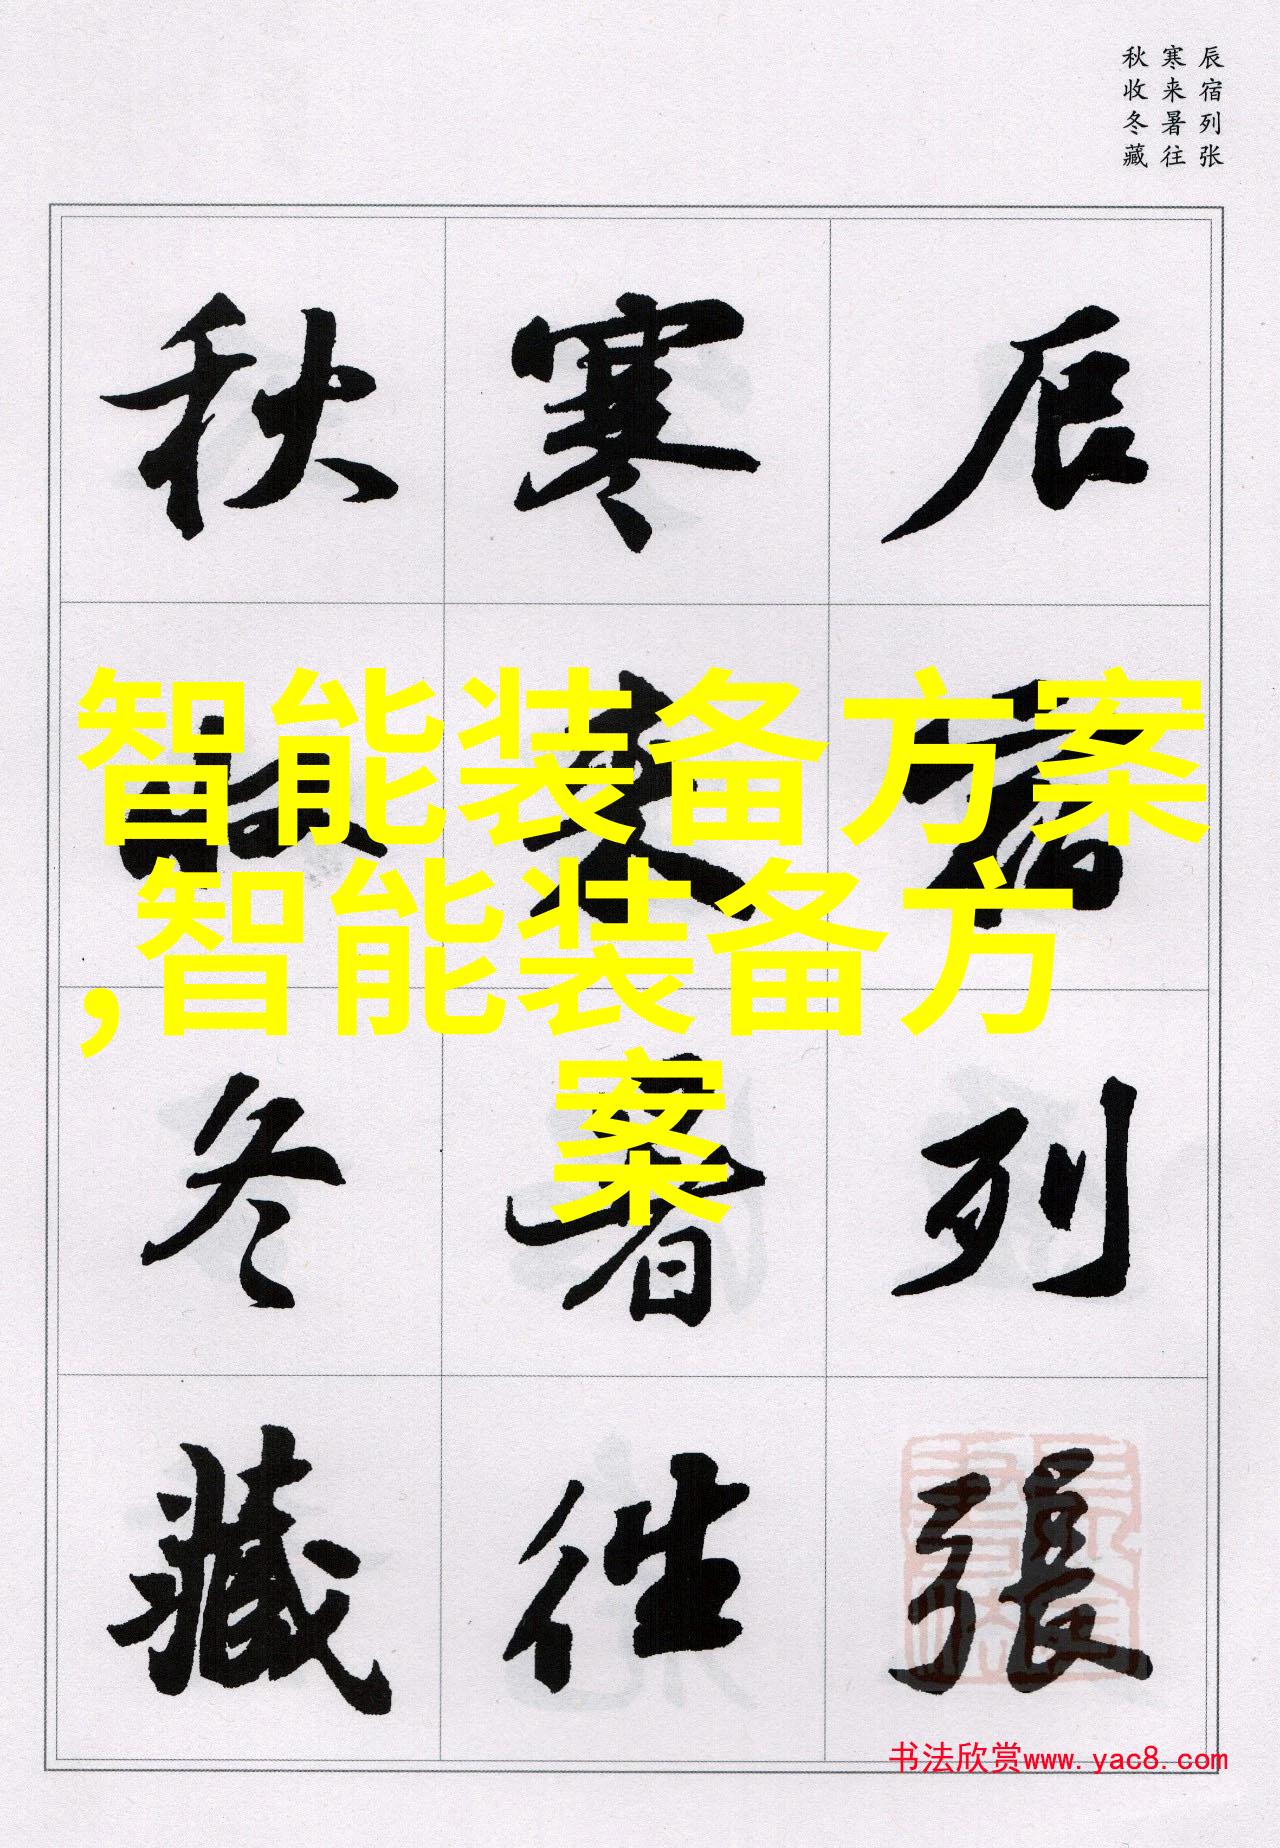 辰宿列张
寒来暑往
秋收冬藏
辰宿列張
寒来暑往
秋收冬藏
智能装备方案
,智能装备方
案
书法欣赏www.yac8.com